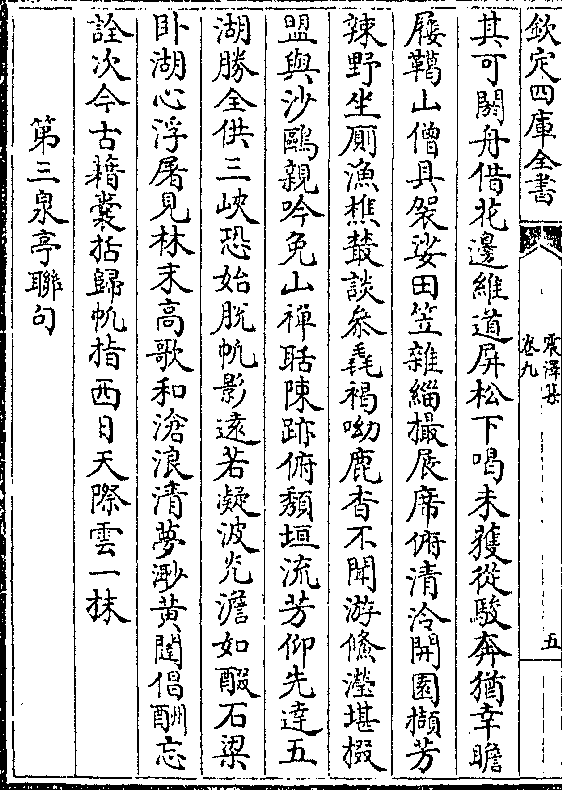 欽定四庫全書
震澤集
卷九
五
其可闕舟借花邊維道屏松下喝未獲從駿奔猶幸瞻
屨鞨山僧具袈娑田笠雜緇撮展席俯清泠開園擷芳
辣野坐厠漁樵叢談參毳褐呦鹿杳不聞游鯈瀅堪掇
盟與沙鷗親吟免山禪聒陳跡俯頹垣流芳仰先達五
湖勝全供三峽恐始脫帆影遠若凝波光澹如酘石梁
卧湖心浮屠見林末高歌和滄浪清夢渺黃闥倡酬忘
詮次今古藉囊括歸帆指西日天際雲一抹
第三泉亭聯句